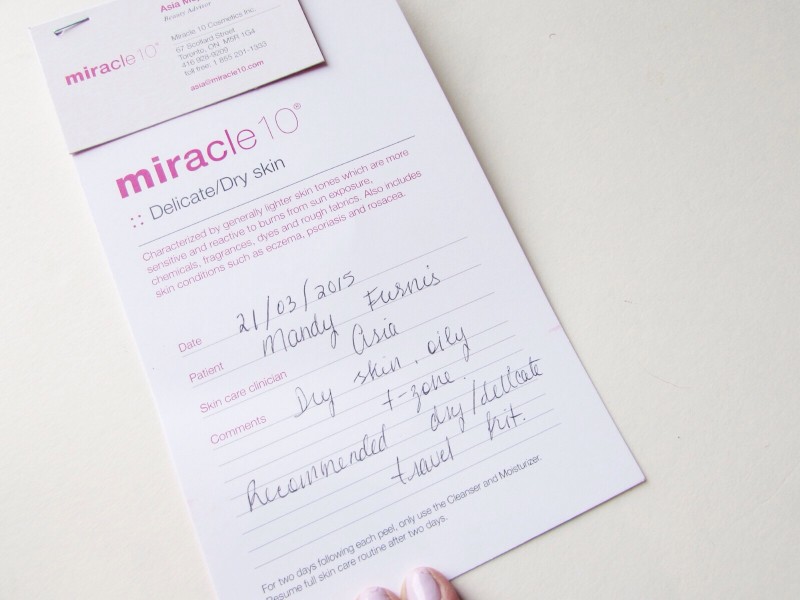 Asia
Beauty Advisor
miracle10
Miracle 10 Cosmetics Inc.
67 Scollard Street
Toronto, ON, M5R 1G4
416 928-9209
toll free: 1 855 201-1303
asia@miracle10.com
miracle10®
Delicate/Dry skin
Characterized by generally lighter skin tones which are more
sensitive and reactive to burns from sun exposure,
chemicals, fragrances, dyes and rough fabrics. Also includes
skin conditions such as eczema, psoriasis and rosacea.
Date 21/03/2015
Patient Mandy Furnis
Skin care clinician Asia
Comments Dry skin. oily
t-zone.
Recommended dry/delicate
travel kit.
For two days following each peel, only use the Cleanser and Moisturizer.
Resume full skin care routine after two days.